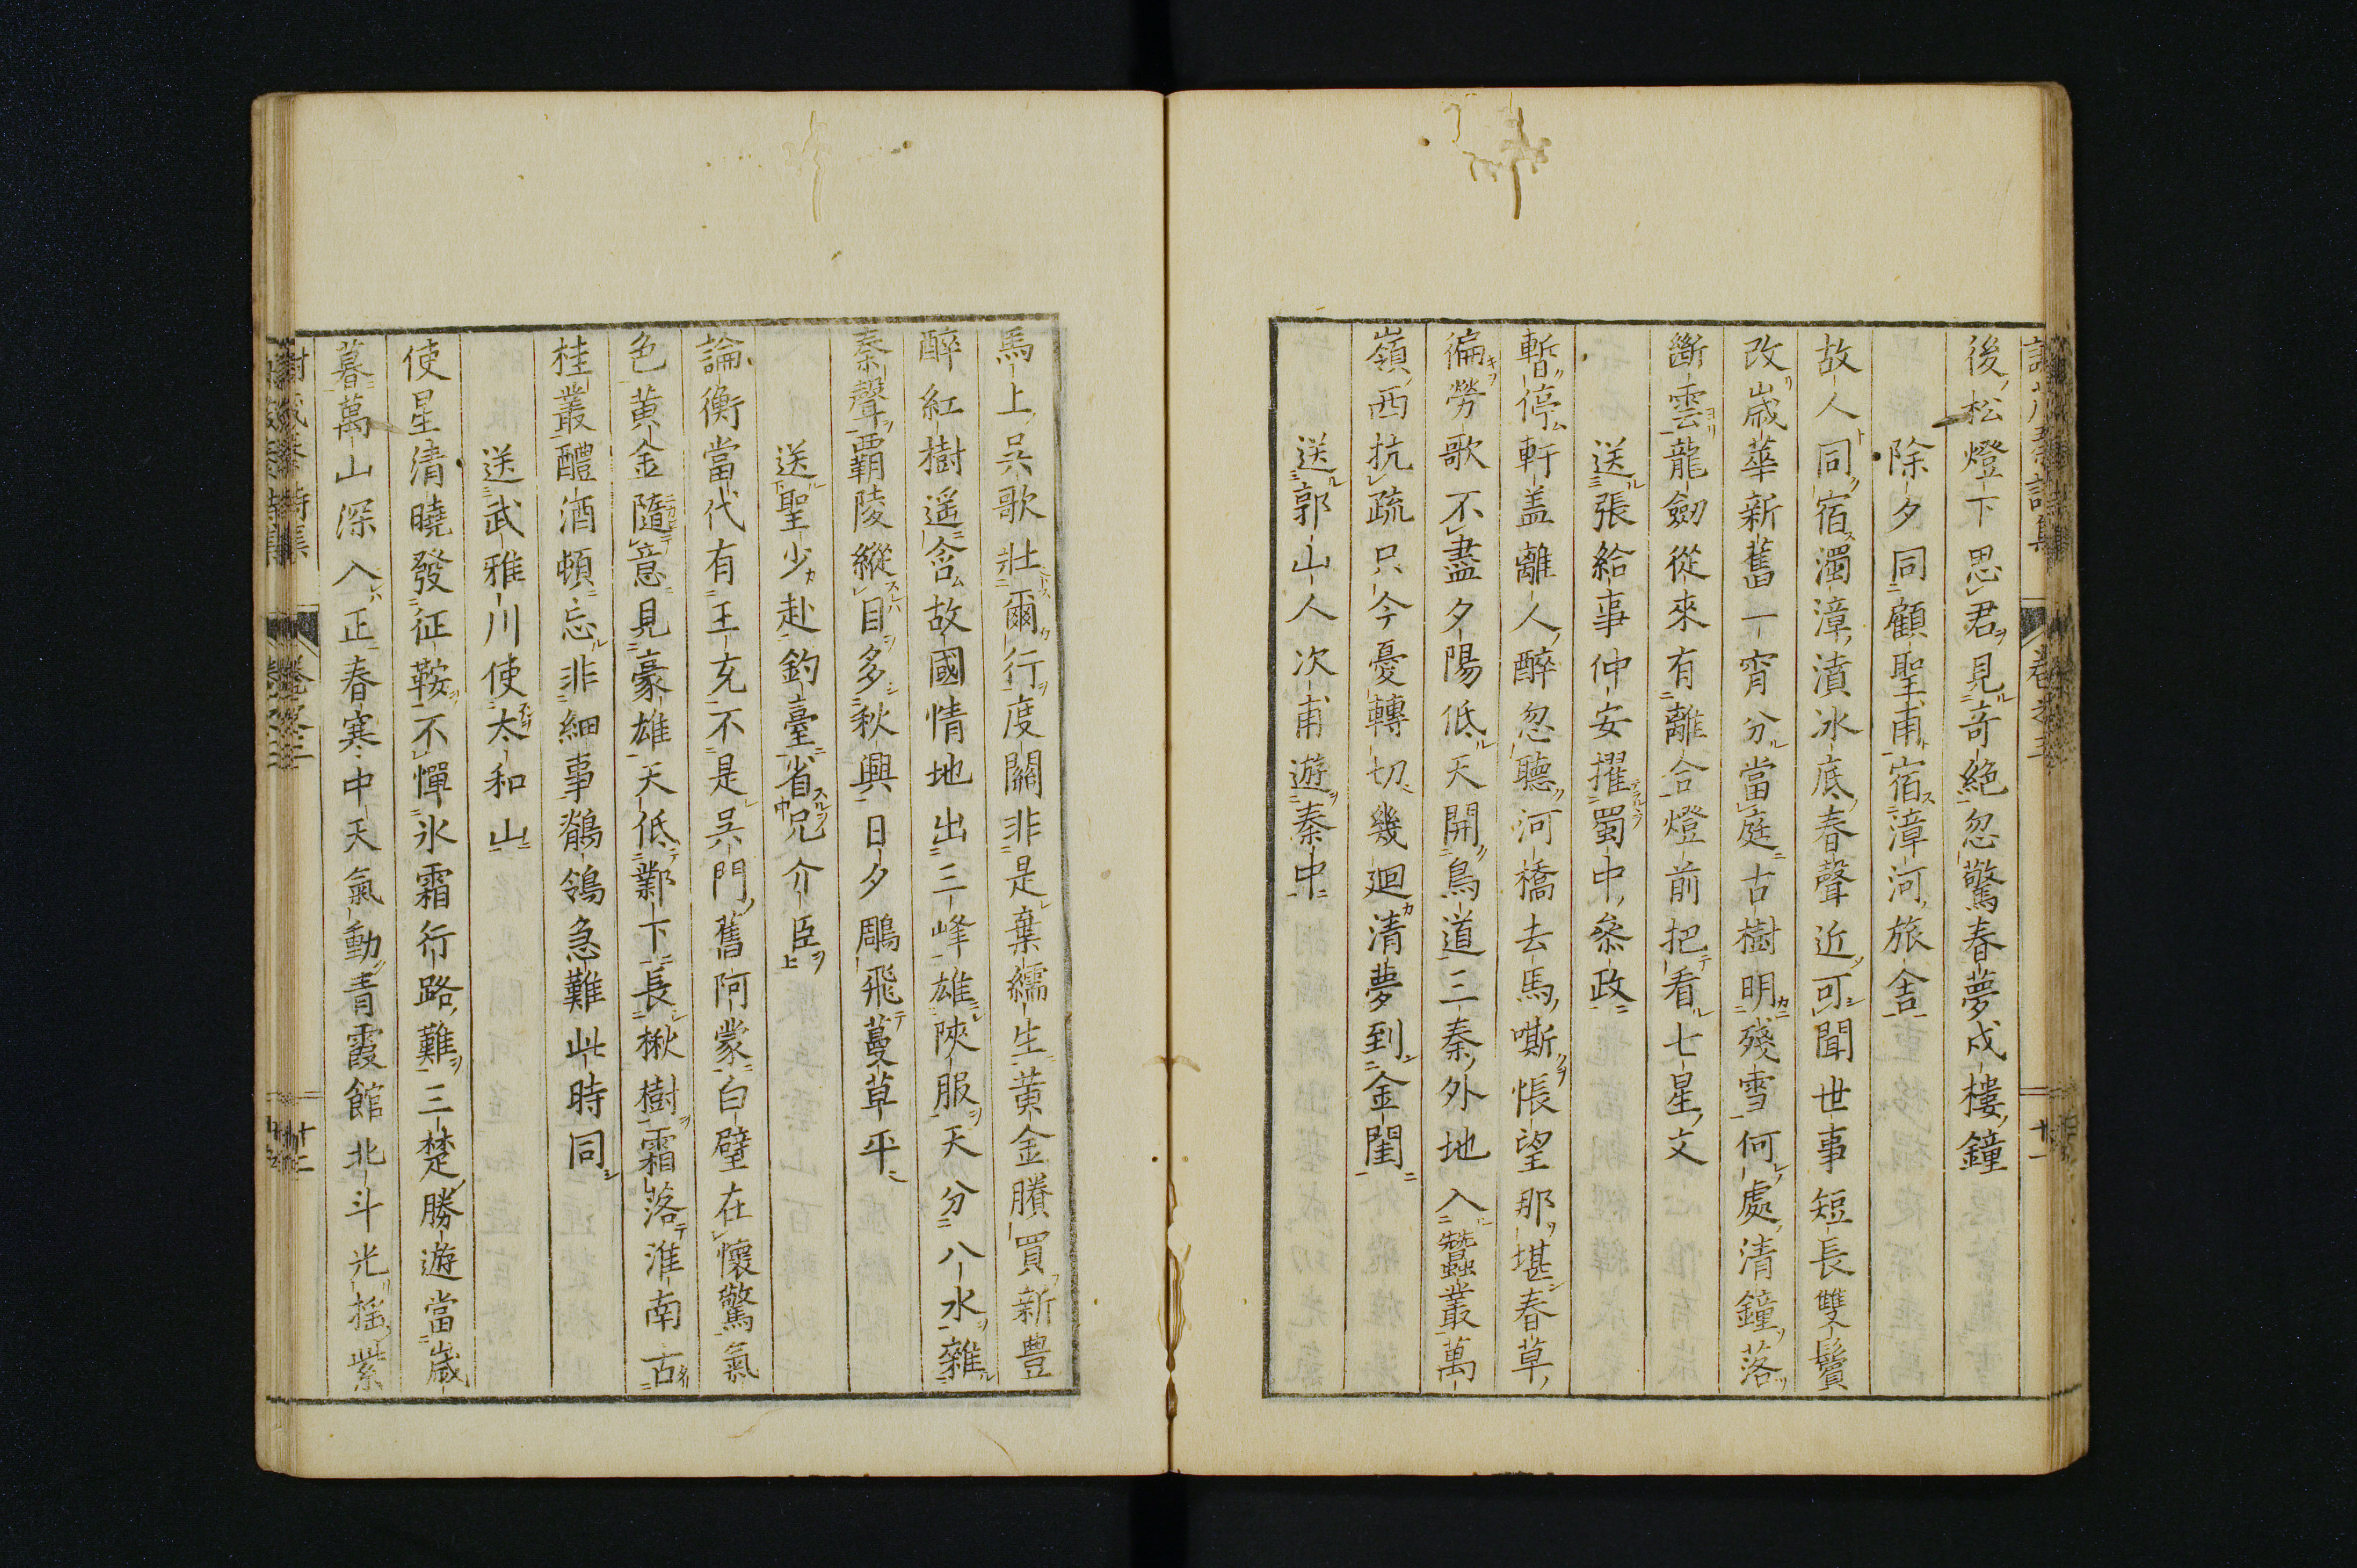 後松燈下思君見奇絶忽驚春夢成樓鐘
除夕同顧聖甫宿漳河旅舍
故人同宿濁漳濆冰底春聲近可聞世事短長雙鬢
改歳華新舊一宵分當庭古樹明殘雪何處清鐘落
斷雲龍劔從來有離合燈前把看七星文
送張給事仲安擢蜀中參政
暫停軒盖離人醉忽聽河橋去馬嘶悵望那堪春草
徧勞歌不盡夕陽低天開鳥道三秦外地入蠶叢萬
嶺西抗疏只今憂轉切幾廻清夢到金閨
送郭山人次甫遊秦中
馬上吳歌壮爾行度關非是棄繻生黄金賸買新豊
醉紅樹遥含故國情地出三峰雄陜服天分八水雜
秦聲覇陵縱目多秋興日夕鵰飛蔓草平
送聖少赴鈞臺省兄介臣
論衡當代有王充不是吳門舊阿蒙白璧在懷驚氣
色黄金隨意見豪雄天低鄴下長楸樹霜落淮南古
桂叢醴酒頓忘非細事鶺鴒急難此時同
送武雅川使太和山
使星清曉發征鞍不憚氷霜行路難三楚勝遊當歳
暮萬山深入正春寒中天氣動青霞館北斗光揺紫